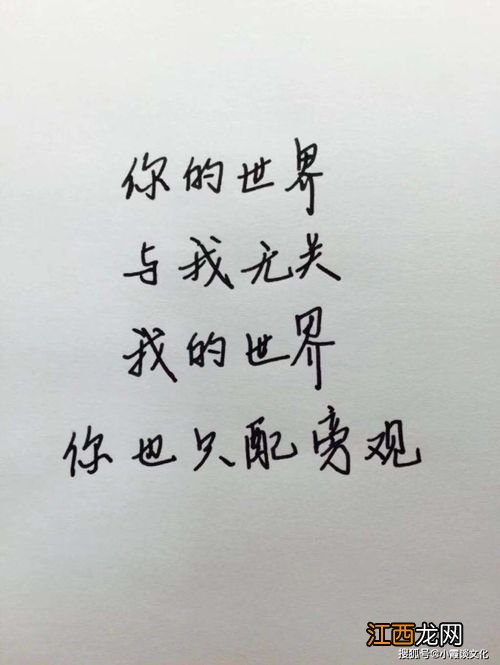 你的世界
与我无关
我的世界
你也只配旁观
江西龙网
搜狐号@小霞谈文化